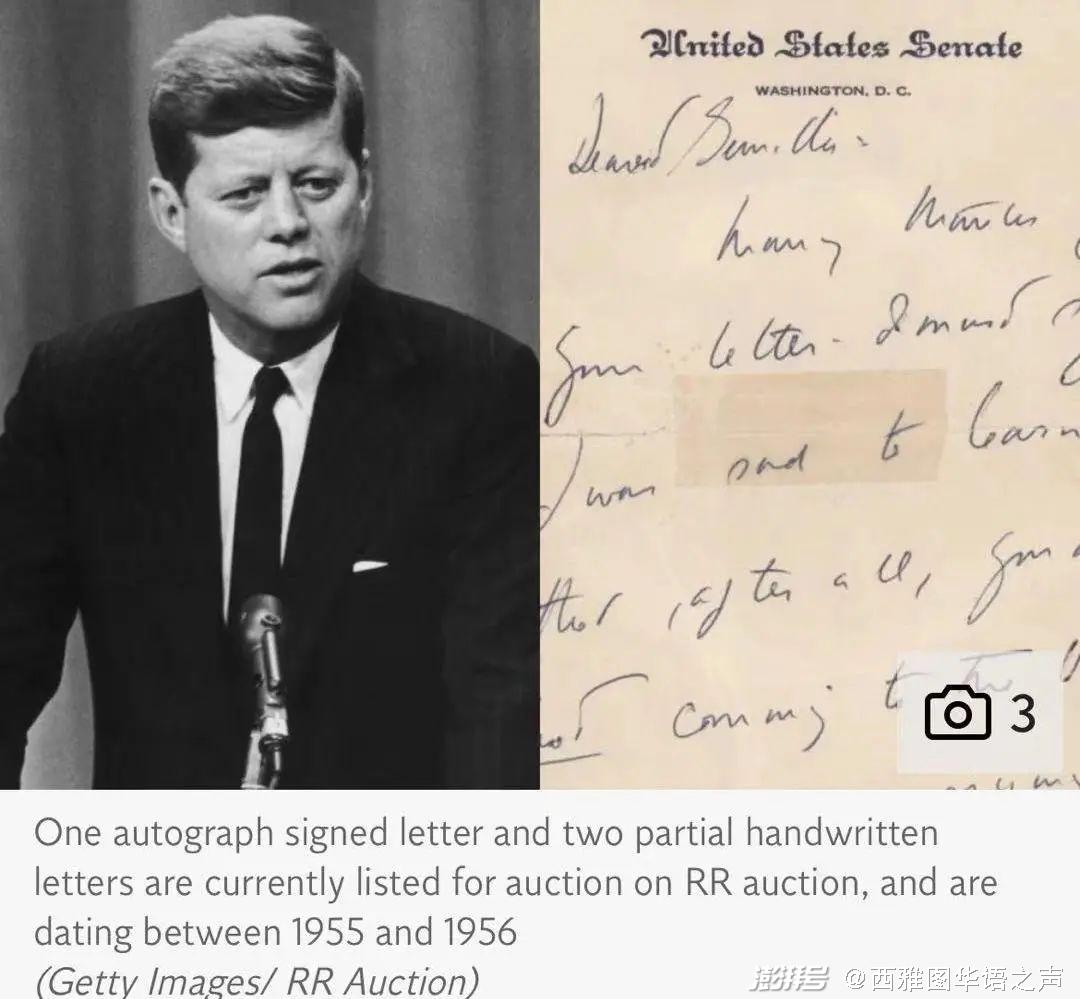 United States Senate
WASHINGTON, D. C.
Dearest Gunilla -
Many thanks
your letter -
I was sad to learn
that, after all, you
not coming to
3
One autograph signed letter and two partial handwritten
letters are currently listed for auction on RR auction, and are
dating between 1955 and 1956
(Getty Images/ RR Auction)
澎湃号 @西雅图华语之声